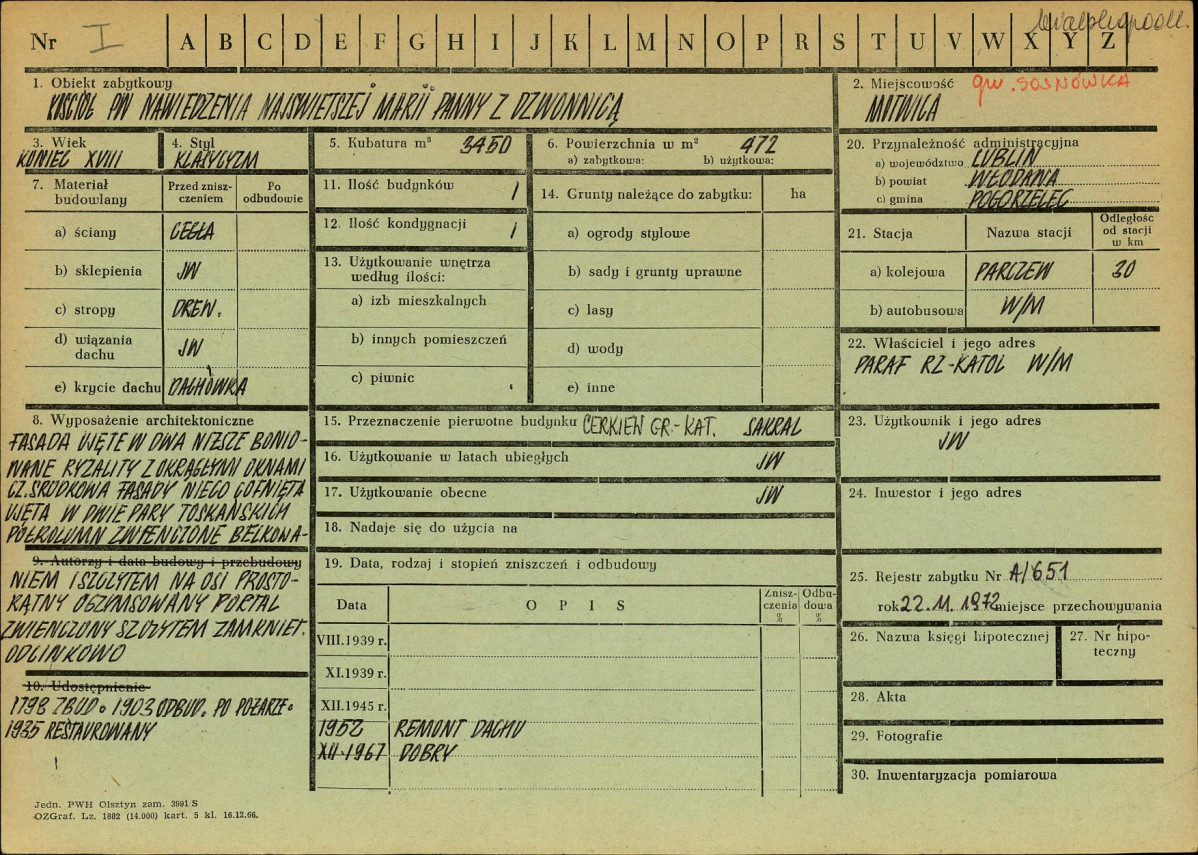 Nr I A B C D E F G H I J K L M N O P R S T U V W X Y Z
1. Obiekt zabytkowy
KOŚCIÓŁ PW NAWIEDZENIA NAJŚWIĘTSZEJ MARII PANNY Z DZWONNICĄ
2. Miejscowość gw. SOSNÓWKA
MOTWICA
3. Wiek
KONIEC XVIII
4. Styl
KLASYCYZM
5. Kubatura m³ 3450
6. Powierzchnia w m² 472
a) zabytkowa: b) użytkowa:
7. Materiał budowlany
Przed zniszczeniem
Po odbudowie
a) ściany CEGŁA
b) sklepienia JW
c) stropy DREW.
d) wiązania dachu JW
e) krycie dachu DACHÓWKA
8. Wyposażenie architektoniczne
FASADA UJĘTE W DWA NIŻSZE BONIO-
WANE RYZALITY Z OKRĄGŁYMI OKNAMI
CZ. ŚRODKOWA FASADY NIECO COFNIĘTA
UJĘTA W DWIE PARY TOSKAŃSKICH
PÓŁKOLUMN ZWIEŃCZONE BELKOWA-
9. Autorzy i data budowy i przebudowy
NIEM I SZCZYTEM NA OSI PROSTO-
KĄTNY OGZYMSOWANY PORTAL
ZWIEŃCZONY SZCZYTEM ZAMKNIĘT.
ODCINKOWO
10. Udostępnienie
1798 ZBUD. 1903 ODBUD. PO POŻARZE.
1935 RESTAUROWANY
11. Ilość budynków 1
12. Ilość kondygnacji 1
13. Użytkowanie wnętrza
według ilości:
a) izb mieszkalnych
b) innych pomieszczeń
c) piwnic
14. Grunty należące do zabytku: ha
a) ogrody stylowe
b) sady i grunty uprawne
c) lasy
d) wody
e) inne
15. Przeznaczenie pierwotne budynku CERKIEW GR.-KAT. SAKRAL
16. Użytkowanie w latach ubiegłych JW
17. Użytkowanie obecne JW
18. Nadaje się do użycia na
19. Data, rodzaj i stopień zniszczeń i odbudowy
Data O P I S Zniszczenia % Odbudowa %
VIII.1939 r.
XI.1939 r.
XII.1945 r.
1952 REMONT DACHU
XII-1967 DOBRY
20. Przynależność administracyjna
a) województwo LUBLIN
b) powiat WŁODAWA
c) gmina POGORZELEC
21. Stacja
Nazwa stacji
Odległość od stacji w km
a) kolejowa PARCZEW 30
b) autobusowa W/M
22. Właściciel i jego adres
PARAF RZ-KATOL W/M
23. Użytkownik i jego adres
JW
24. Inwestor i jego adres
25. Rejestr zabytku Nr A/651
rok 22.11.1972 miejsce przechowywania
26. Nazwa księgi hipotecznej
27. Nr hipoteczny
28. Akta
29. Fotografie
30. Inwentaryzacja pomiarowa
Jedn. PWH Olsztyn zam. 3991/S
OZGraf. Lz. 1882 (14.000) kart. 5 kl. 16.12.66.